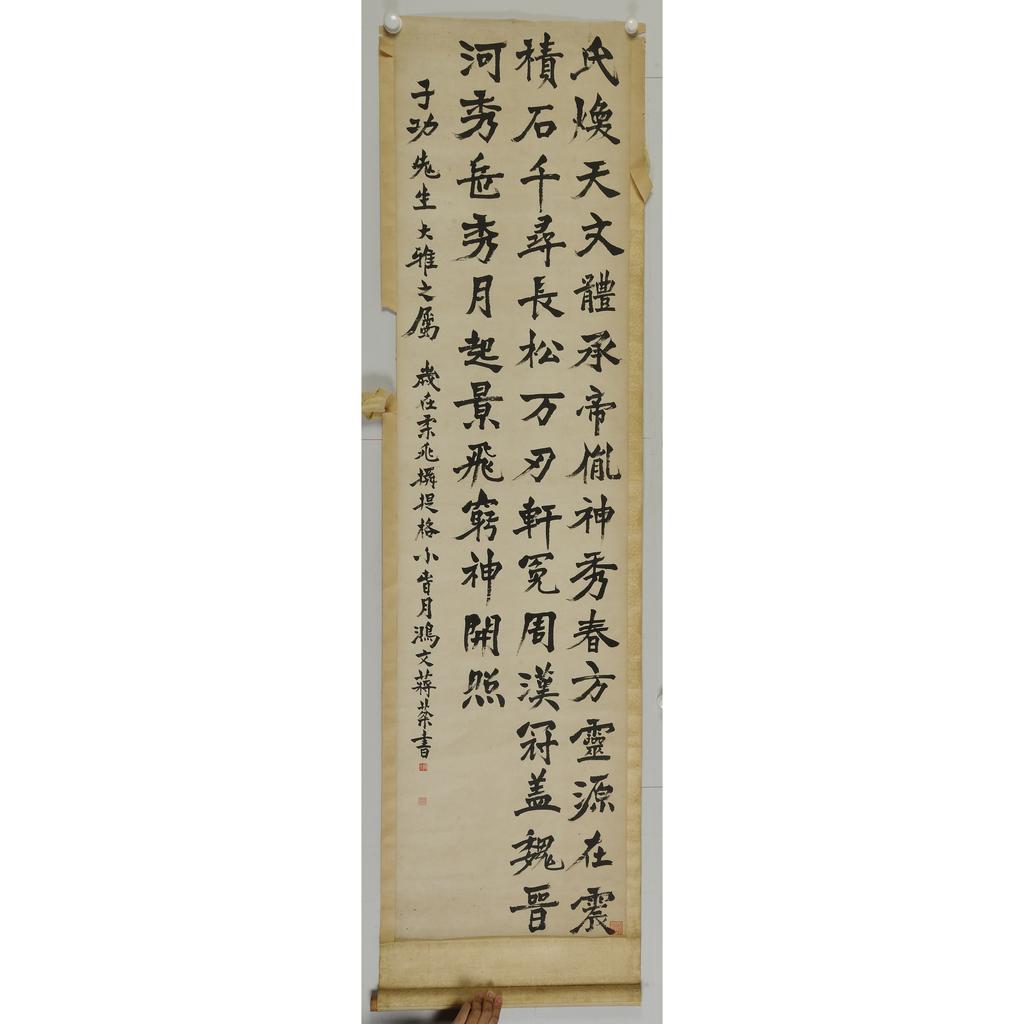 氏煥天文體承帝胤神秀春方靈源在震
積石千尋長松万刃軒冕周漢冠盖魏晉
河秀岳秀月起景飛窮神開照
子功先生大雅之屬 歲在柔兆攝提格小春月鴻文蔣棻書